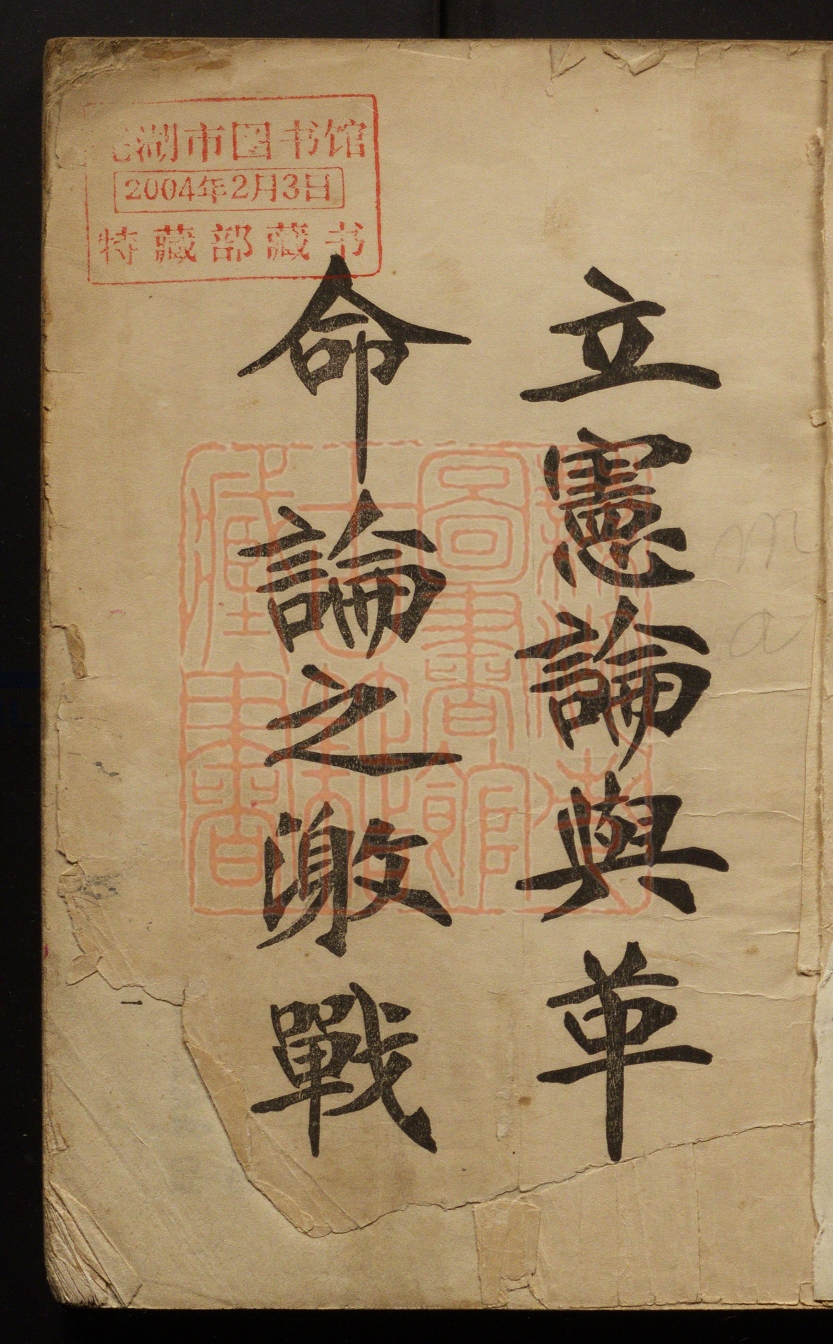 立憲論與革
命論之激戰
湖市图书馆
2004年2月3日
特藏部藏书